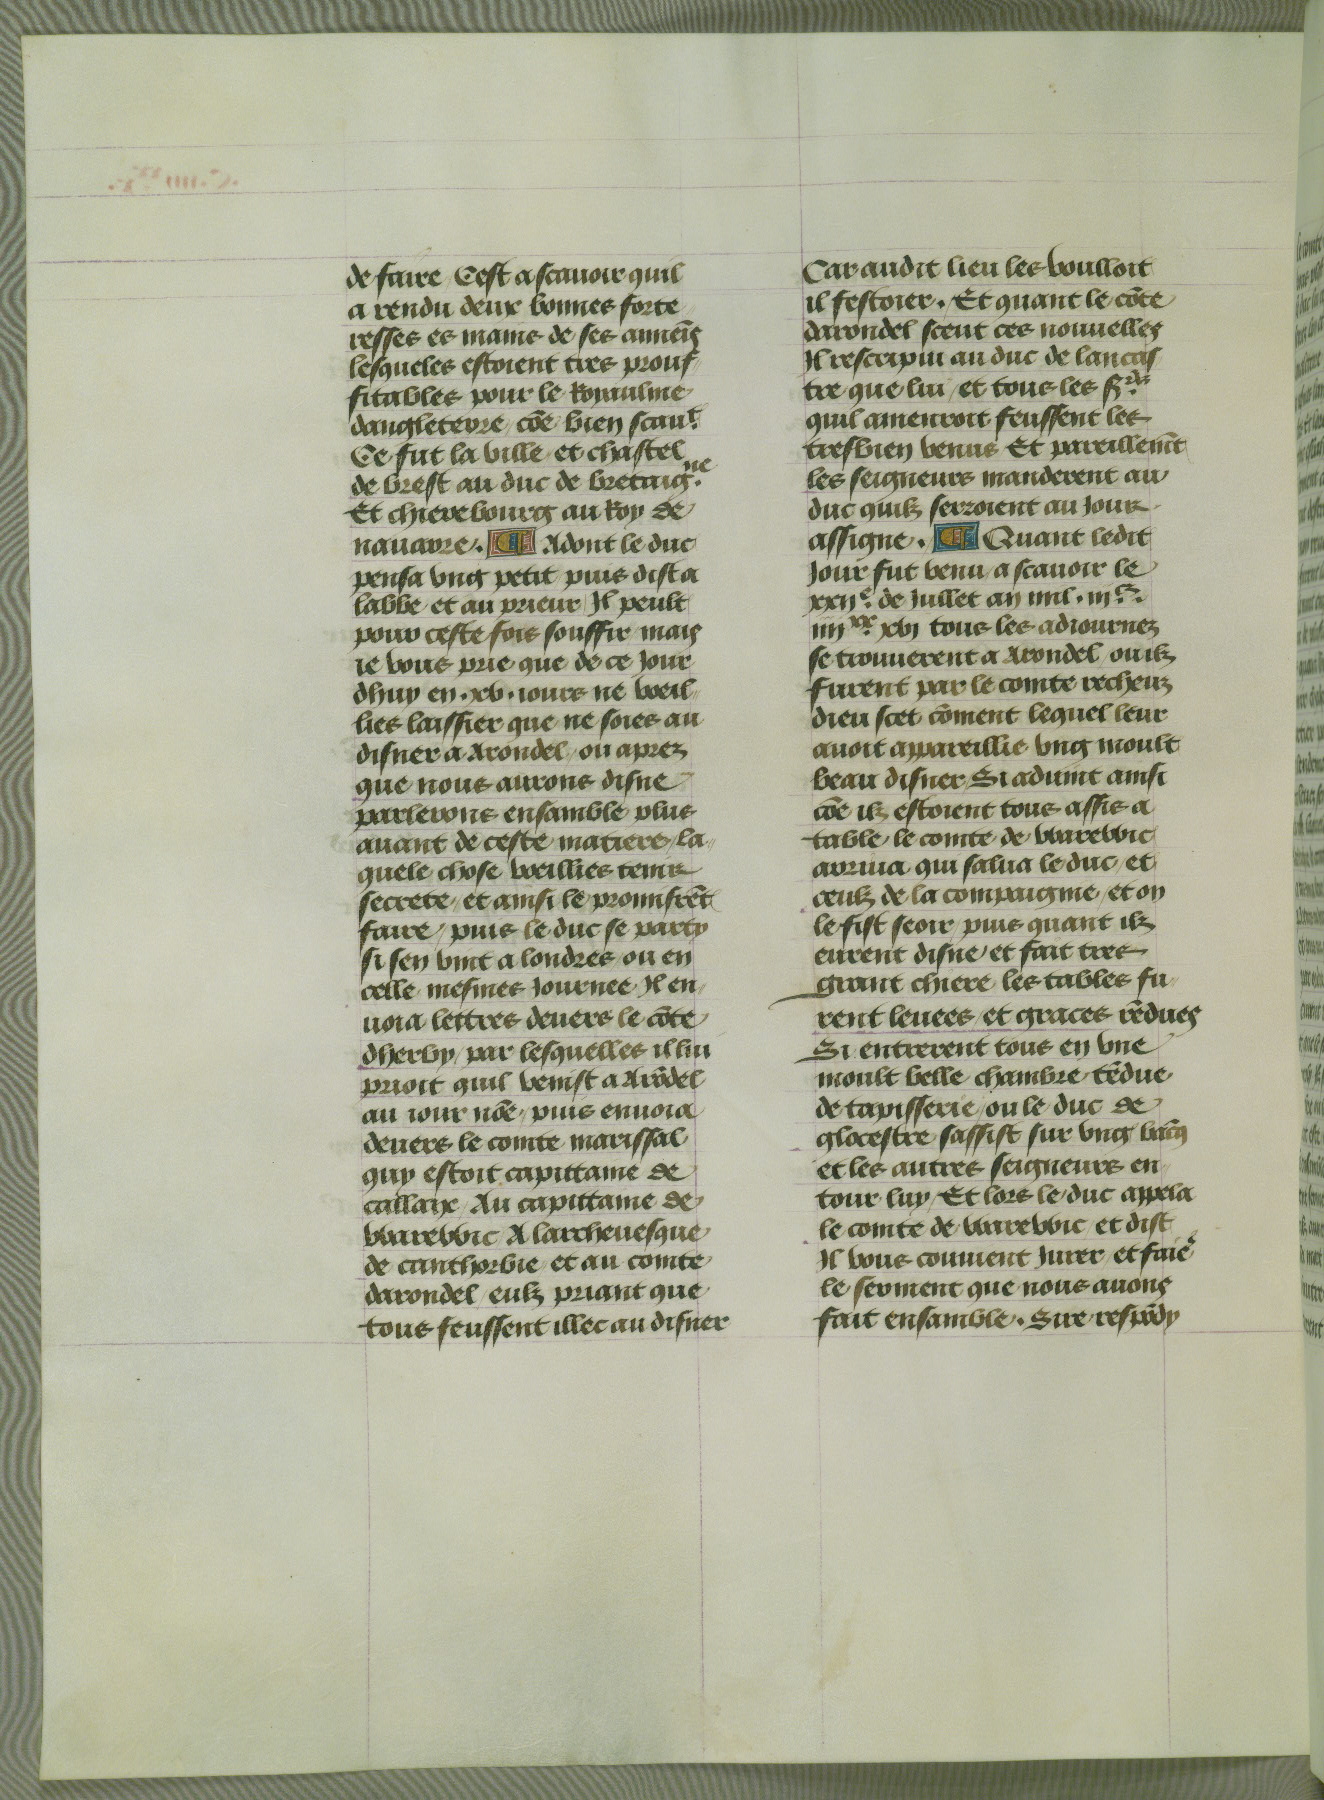 de faire Cest a scauoir quil
a rendu deux bonnes forte
resses es mains de ses anneis̃
lesqueles estoient tres prouf
fitables pour le Royaulme
dangleterre cõe bien scauͬ.
Ce fut la ville et chastel
de brest au duc de bretaigⁿᵉ.
Et chierebourg au Roy de
nauarre. ¶ Adont le duc
pensa vng petit puis dist a
labbe et au prieur Il peult
pour ceste fois souffir mais
ie vous prie que de ce Jour
dhuy en .xv. iours ne vœil-
lies laissier que ne soies au
disner a Arondel ou aprez
que nous aurons disne
parlerons ensamble plus
auant de ceste matiere la-
quele chose vœillies tenir
secrete et ainsi le promisrẽt
faire / puis le duc se party
si sen vint a londres ou en
celle mesmes Journee Il en-
uoia lettres deuers le cõte
dherby / par lesquelles il lui
prioit quil venist a Arõdel
au iour nõe puis enuoia
deuers le comte marissal
quy estoit capittaine de
callaix Au capittaine de
warewic A larcheuesque
de canthorbie et au comte
darondel eulz priant que
tous feussent illec au disner
Car audit lieu les voulloit
il festoier. Et quant le cõte
darondel sceut ces nouuelles
Il rescripui au duc de lancas
tre que lui et tous les sʳˢ.
quil amenroit feussent les
tresbien venus Et pareillemẽt
les seigneurs manderent au
duc quilz serroient au Jour
assigne. ¶ Quant ledit
Jour fut venu a scauoir le
xxiiᵉ. de Juillet an mil. iiiᶜ.
iiiiˣˣ. xvi tous les adiournez
se trouuerent a Arondel ou ilz
furent par le comte recheuz
dieu scet cõment lequel leur
auoit appareillie vng moult
beau disner Si aduint ainsi
cõe ilz estoient tous assis a
table le comte de warewic
arriua qui salua le duc et
ceulz de la compaignie et on
le fist seoir puis quant ilz
eurent disne et fait tres
grant chiere les tables fu-
rent leuees et graces rẽdues
Si entrerent tous en vne
moult belle chambre tẽdue
de tapisserie ou le duc de
glocestre sassist sur vng bãcq
et les autres seigneurs en
tour luy Et lors le duc appela
le comte de warewic et dist
Il vous conuient Jurer et faiẽ
le serment que nous auons
fait ensamble. Sire respõdy